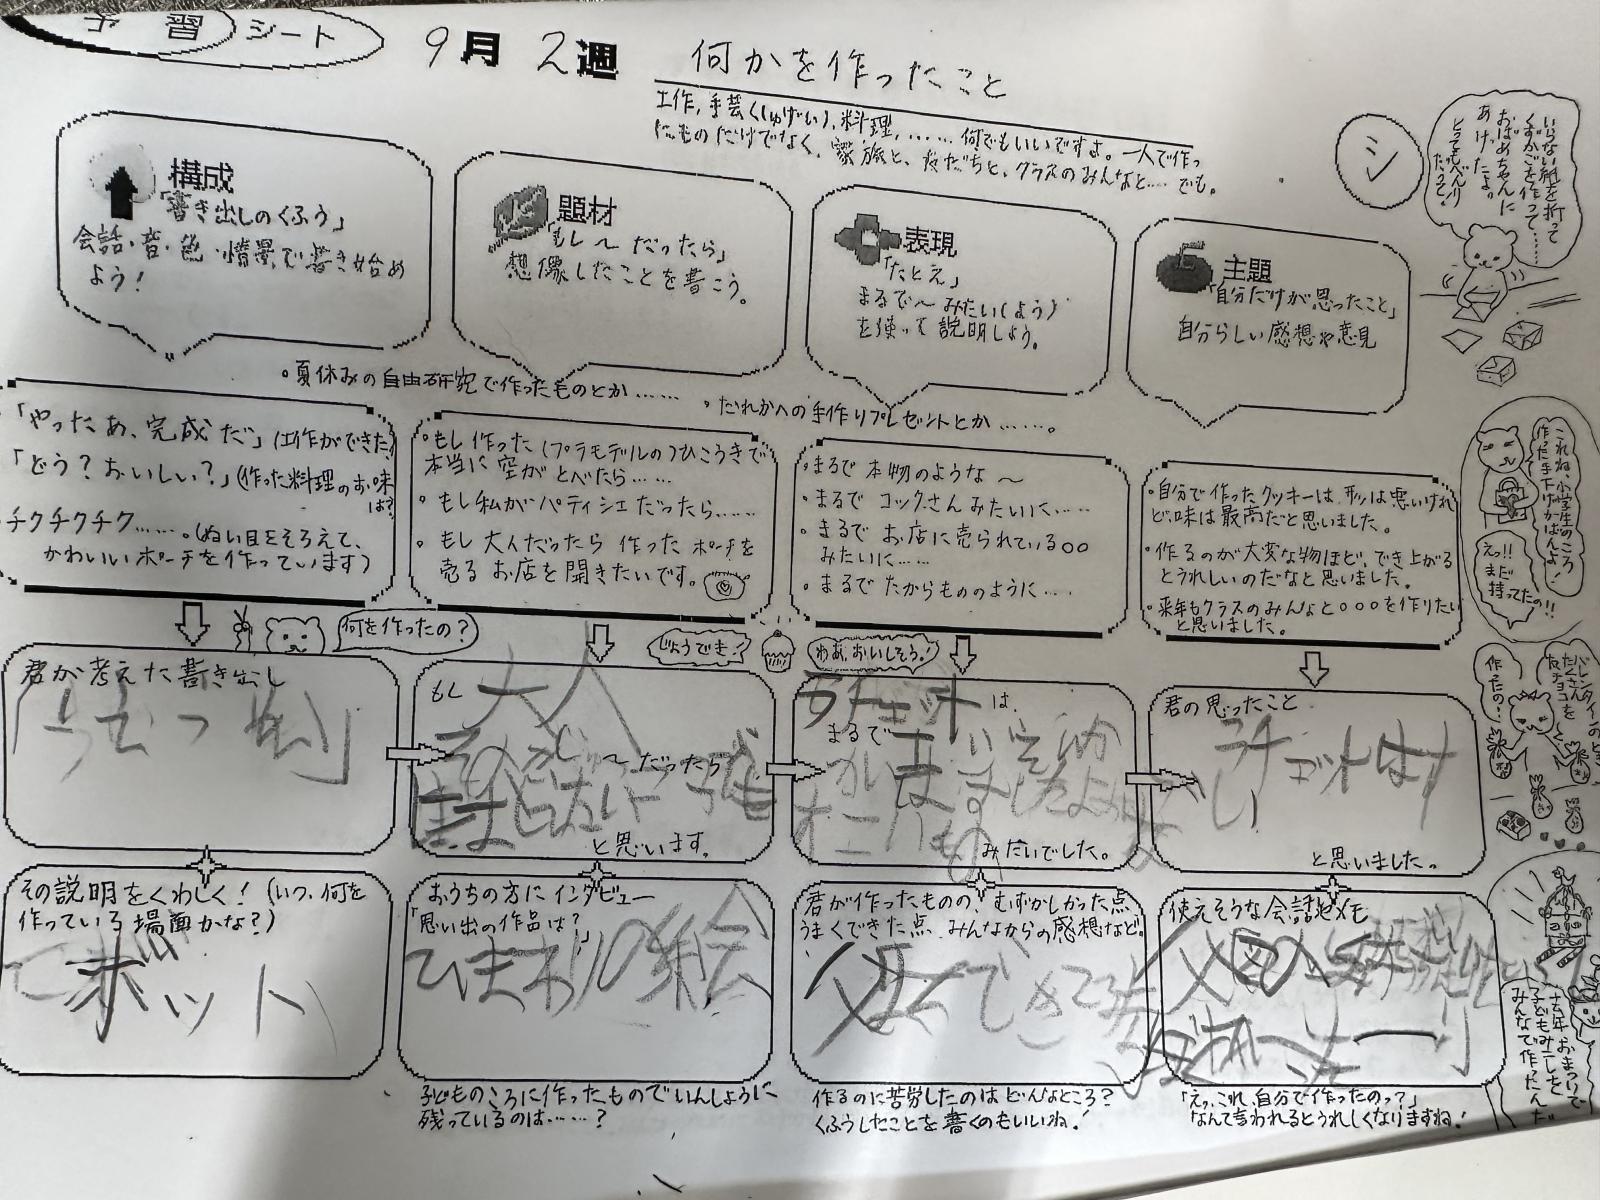 予習シート
9月 2週
何かを作ったこと
工作,手芸(しゅげい),料理,……何でもいいですよ。一人で作っ
たものだけでなく、家族と、友だちと、クラスのみんなと…でも。
シ
いらない紙を折って
くずかごを作って……
おばあちゃんに
あげたよ。
とってもべんり
だって!
構成
「書き出しのくふう」
会話・音・色・情景で書き始め
よう!
題材
「もし〜だったら」
想像したことを書こう。
表現
「たとえ」
まるで〜みたい(よう)
を使って説明しよう。
主題
「自分だけが思ったこと」
自分らしい感想や意見
・夏休みの自由研究で作ったものとか……
・だれかへの手作りプレゼントとか……。
「やったあ、完成だ」(工作ができた)
「どう?おいしい?」(作った料理のお味
は?
チクチクチク……。(ぬい目をそろえて、
かわいいポーチを作っています)
・もし作った(プラモデルの)ひこうきで
本当に空がとべたら……
・もし私がパティシエだったら……
・もし大人だったら作ったポーチを
売るお店を開きたいです。
・まるで本物のような〜
・まるでコックさんみたいに……
・まるでお店に売られている○○
みたいに……
・まるでたからもののように…
・自分で作ったクッキーは形は悪いけれ
ど、味は最高だと思いました。
・作るのが大変な物ほど、でき上がる
とうれしいのだなと思いました。
・来年もクラスのみんなと○○○を作りたい
と思いました。
これね、小学生のころ
作った手下げかばんよ!
えっ!!
まだ
持ってたの!!
何を作ったの?
じょうでき!
わあ、おいしそう!
君が考えた書き出し
もし
大人
〜だったら
と思います。
ラチェット
は、
まるで
みたいでした。
君の思ったこと
ラチェットはす
と思いました。
バレンタインのとき
たくさん
友チョコを
作ったの!
その説明をくわしく!(いつ、何を
作っている場面かな?)
おうちの方にインタビュー
「思い出の作品は?」
ひまわりの絵
子どものころに作ったものでいんしょうに
残っているのは……?
君が作ったものの、むずかしかった点
うまくできた点、みんなからの感想など。
作るのに苦労したのはどんなところ?
くふうしたことを書くのもいいね!
使えそうな会話やメモ
「えっ、これ、自分で作ったのっ?」
なんて言われるとうれしくなりますね!
去年おまつりで
子どもみこしを
みんなで作ったんだ